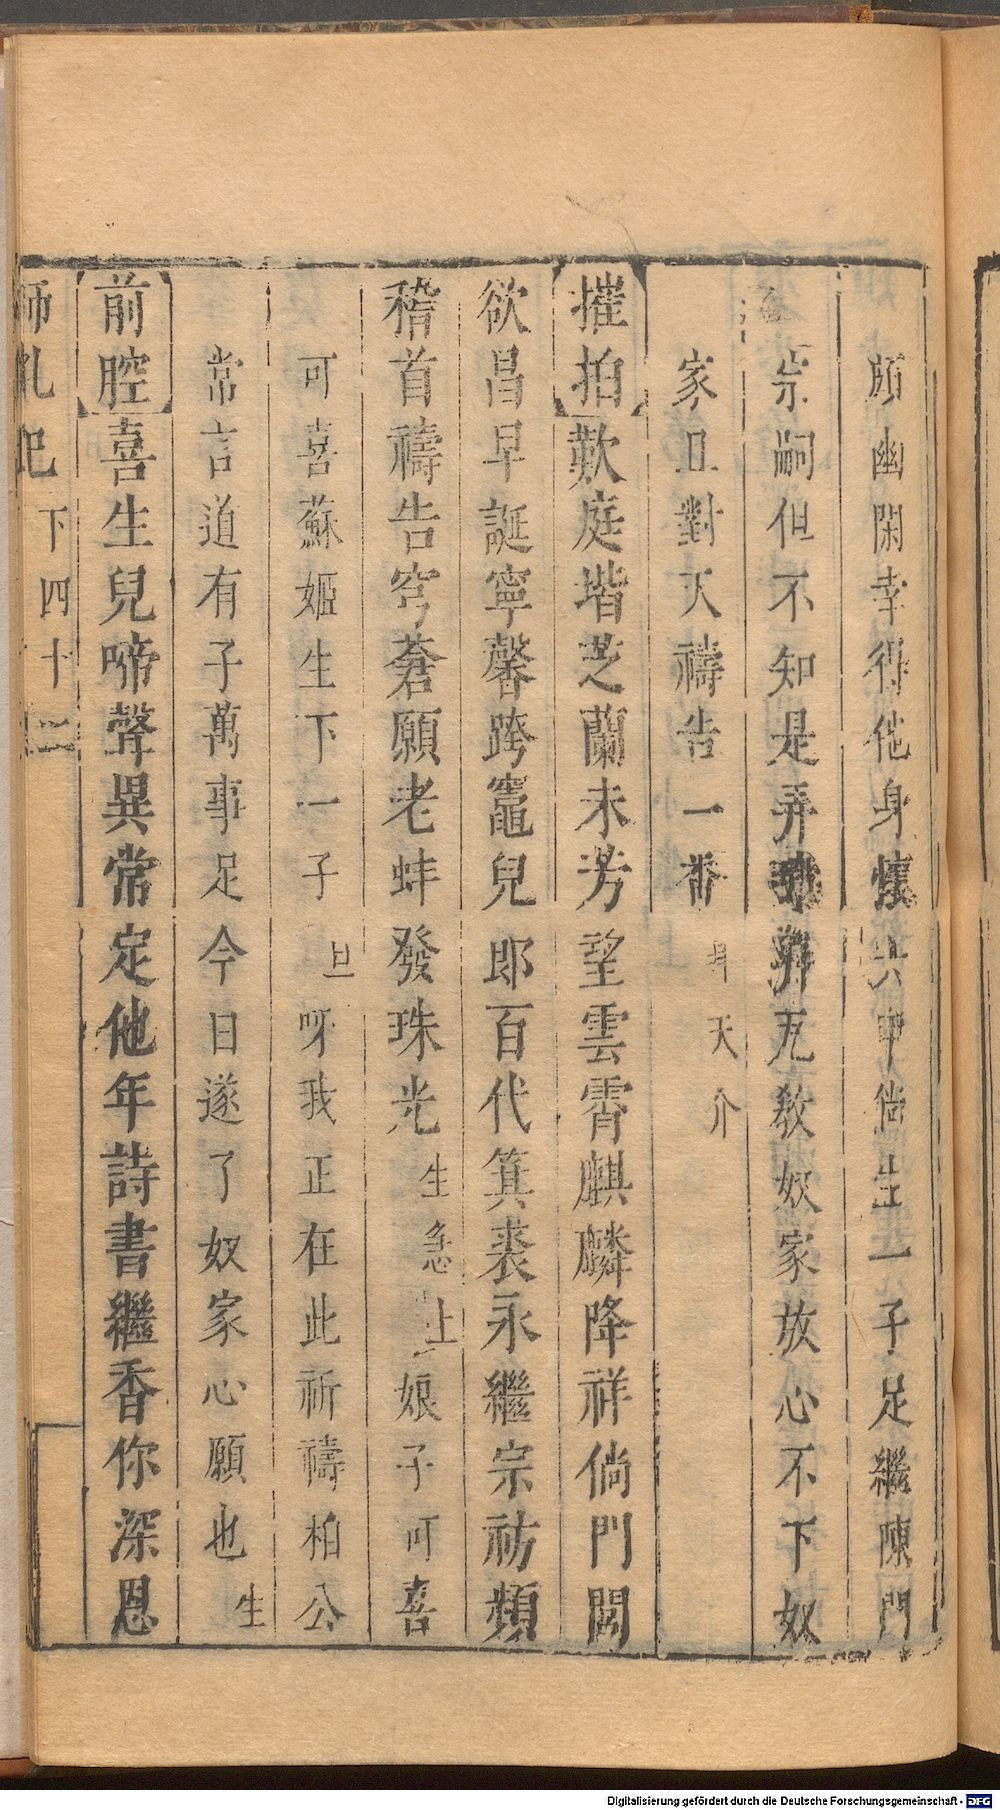 頗幽閑幸得他身懷六甲倘生一子足繼陳門
宗嗣但不知是弄璋弄瓦教奴家放心不下奴
家且對天禱告一番拜天介
摧拍歎庭堦芝蘭未芳望雲霄麒麟降祥倘門閭
欲昌早誕寧馨跨竈兒郎百代箕裘永繼宗祊類
稽首禱告穹蒼願老蚌發珠光生急上娘子可喜
可喜蘇姬生下一子旦呀我正在此祈禱相公
常言道有子萬事足今日遂了奴家心願也生
前腔喜生兒啼聲異常定他年詩書繼香你深恩
獅吼記 下 四十二
Digitalisierung gefördert durch die Deutsche Forschungsgemeinschaft - DFG